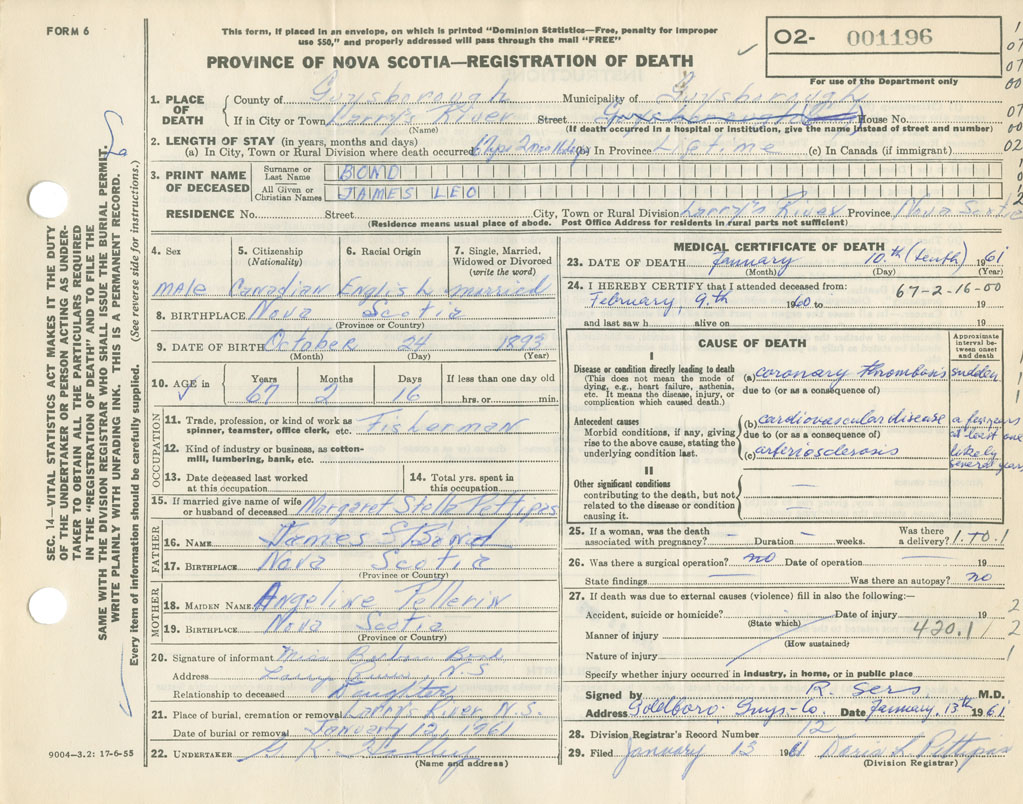 FORM 6
This form, if placed in an envelope, on which is printed "Dominion Statistics—Free, penalty for improper
use $50," and properly addressed will pass through the mail "FREE"
PROVINCE OF NOVA SCOTIA—REGISTRATION OF DEATH
O2- 001196
For use of the Department only
1. PLACE OF DEATH County of Guysborough Municipality of Guysborough
If in City or Town Larry's River Street House No.
(Name) (If death occurred in a hospital or institution, give the name instead of street and number)
2. LENGTH OF STAY (in years, months and days)
(a) In City, Town or Rural Division where death occurred 67yrs 2mos 16dys (b) In Province Lifetime (c) In Canada (if immigrant)
3. PRINT NAME OF DECEASED Surname or Last Name BOND
All Given or Christian Names JAMES LEO
RESIDENCE No. Street City, Town or Rural Division Larry's River Province Nova Scotia
(Residence means usual place of abode. Post Office Address for residents in rural parts not sufficient)
SEC. 14—VITAL STATISTICS ACT MAKES IT THE DUTY
OF THE UNDERTAKER OR PERSON ACTING AS UNDER-
TAKER TO OBTAIN ALL THE PARTICULARS REQUIRED
IN THE "REGISTRATION OF DEATH" AND TO FILE THE
SAME WITH THE DIVISION REGISTRAR WHO SHALL ISSUE THE BURIAL PERMIT.
WRITE PLAINLY WITH UNFADING INK. THIS IS A PERMANENT RECORD.
Every item of information should be carefully supplied. (See reverse side for instructions.)
4. Sex 5. Citizenship 6. Racial Origin 7. Single, Married,
(Nationality) Widowed or Divorced
(write the word)
male Canadian English married
8. BIRTHPLACE Nova Scotia
(Province or Country)
9. DATE OF BIRTH October 24 1893
(Month) (Day) (Year)
10. AGE in Years Months Days If less than one day old
67 2 16 hrs. or min.
OCCUPATION
11. Trade, profession, or kind of work as
spinner, teamster, office clerk, etc. Fisherman
12. Kind of industry or business, as cotton-
mill, lumbering, bank, etc.
13. Date deceased last worked at this occupation
14. Total yrs. spent in this occupation
15. If married give name of wife
or husband of deceased Margaret Stella Pettipas
FATHER
16. NAME James S Bond
17. BIRTHPLACE Nova Scotia
(Province or Country)
MOTHER
18. MAIDEN NAME Angeline Pellerin
19. BIRTHPLACE Nova Scotia
(Province or Country)
20. Signature of informant Miss Bond
Address Larry's River N.S
Relationship to deceased Daughter
21. Place of burial, cremation or removal Larry's River N.S.
Date of burial or removal January 12, 1961
22. UNDERTAKER G. K.
(Name and address)
9004—3.2: 17-6-55
MEDICAL CERTIFICATE OF DEATH
23. DATE OF DEATH January 10.th (tenth) 1961
(Month) (Day) (Year)
24. I HEREBY CERTIFY that I attended deceased from: 67-2-16-00
February 9.th 1960 to 19
and last saw h alive on 19
CAUSE OF DEATH
Approximate interval be-tween onset and death
I
Disease or condition directly leading to death
(This does not mean the mode of
dying, e.g., heart failure, asthenia,
etc. It means the disease, injury, or
complication which caused death.)
(a) coronary thrombosis sudden
due to (or as a consequence of)
Antecedent causes
Morbid conditions, if any, giving
rise to the above cause, stating the
underlying condition last.
(b) cardiovascular disease a few years at least
due to (or as a consequence of)
(c) arteriosclerosis one likely several years
II
Other significant conditions
contributing to the death, but not
related to the disease or condition
causing it.
25. If a woman, was the death Was there
associated with pregnancy? – Duration – weeks. a delivery? 1.TO.1
26. Was there a surgical operation? no Date of operation 19
State findings — Was there an autopsy? no
27. If death was due to external causes (violence) fill in also the following:—
Accident, suicide or homicide? Date of injury 19
(State which)
Manner of injury 420.1
(How sustained)
Nature of injury
Specify whether injury occurred in industry, in home, or in public place
Signed by R. Sers M.D.
Address Goldboro, Guys-Co. Date January, 13th 1961
28. Division Registrar's Record Number 12
29. Filed January 13 1961 David L Pettipas
(Division Registrar)